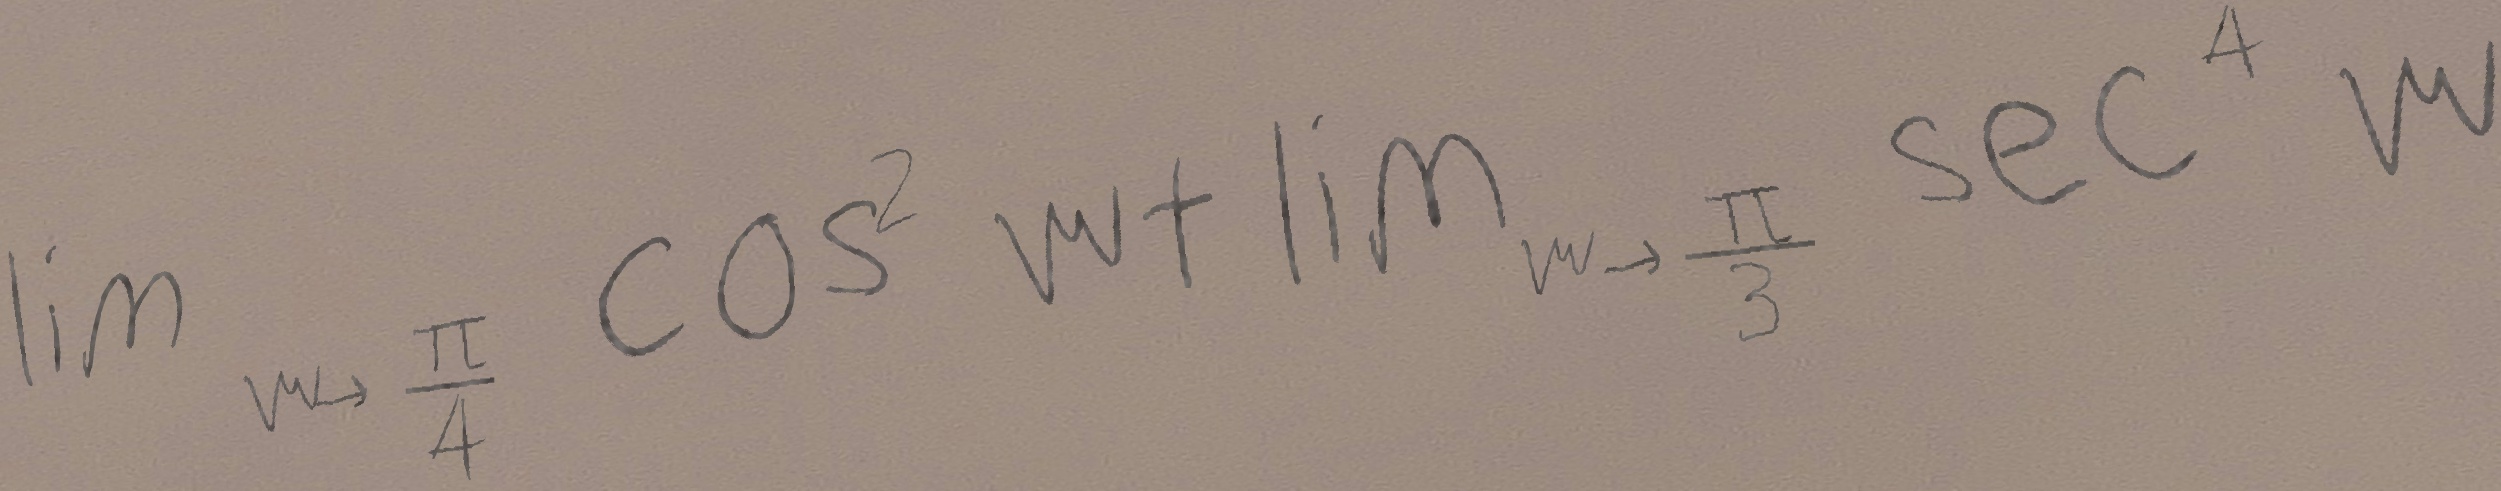 \lim_{w \to \frac{\pi}{4}} \cos^2 w + \lim_{w \to \frac{\pi}{3}} \sec^4 w